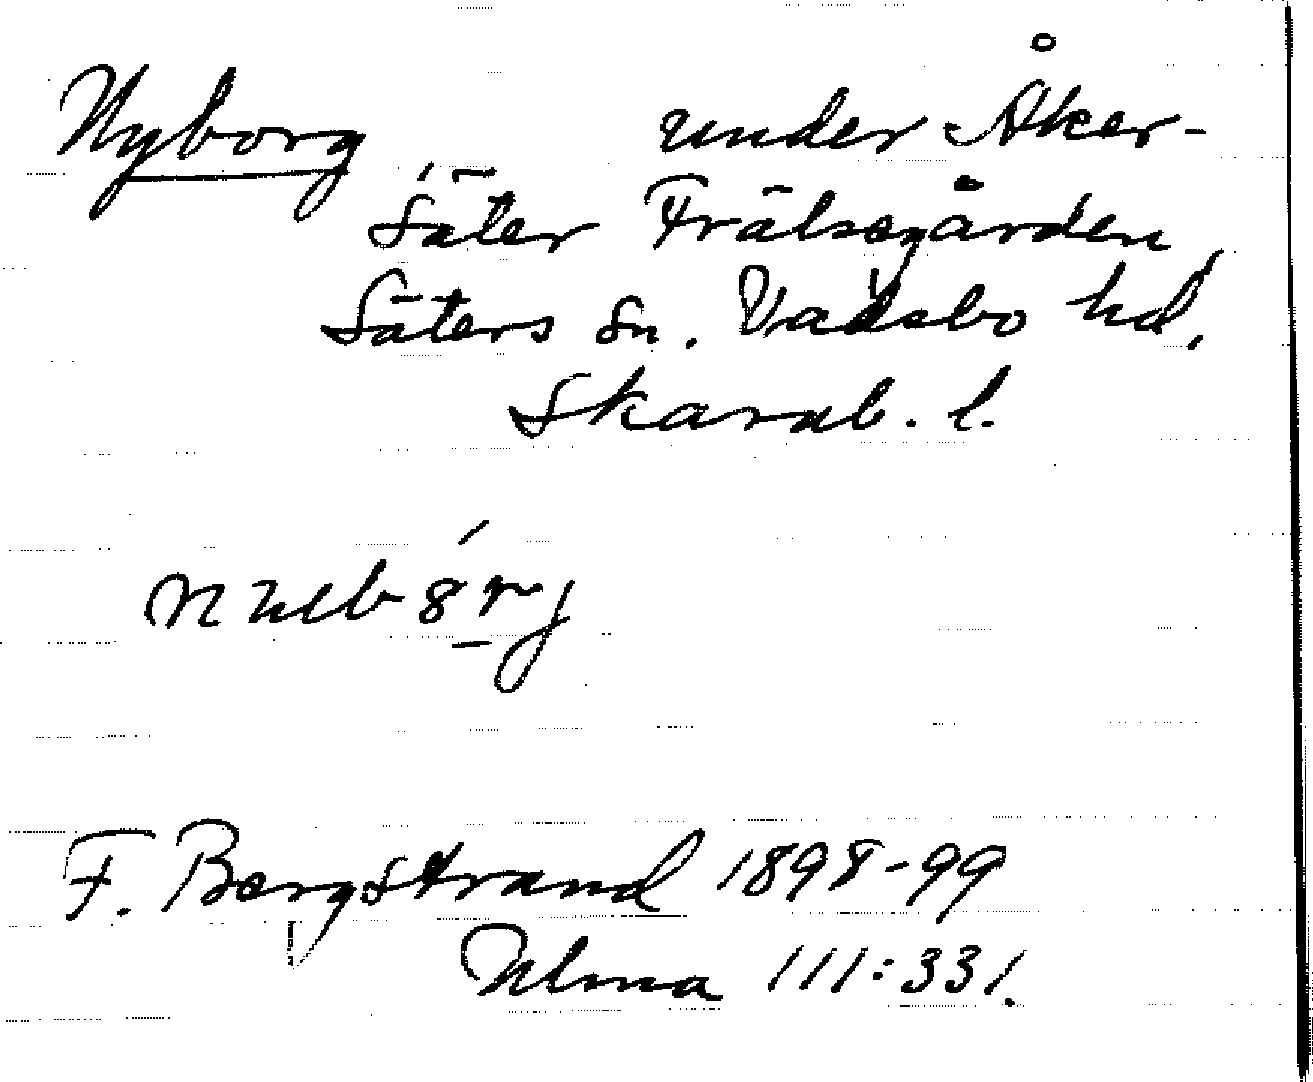 Nyborg under Åker-
säter Frälsegården,
Säters sn. Vadsbo hd,
Skarab. l.
F. Bergstrand 1898-99
Ulma 111:331.